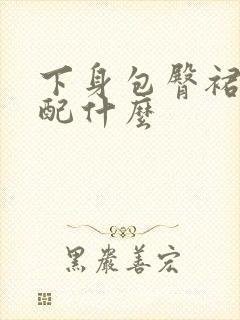 下身包臀裙
配什麼
黑嚴善宏